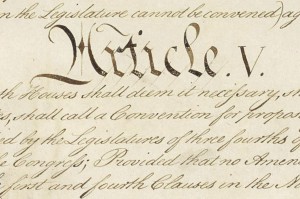 the Legislature cannot be convened) ag
Article. V.
th Houses shall deem it necessary, sh
s, shall call a Convention for propos
ed by the Legislatures of three fourths of
e Congress; Provided that no Amen
first and fourth Clauses in the N